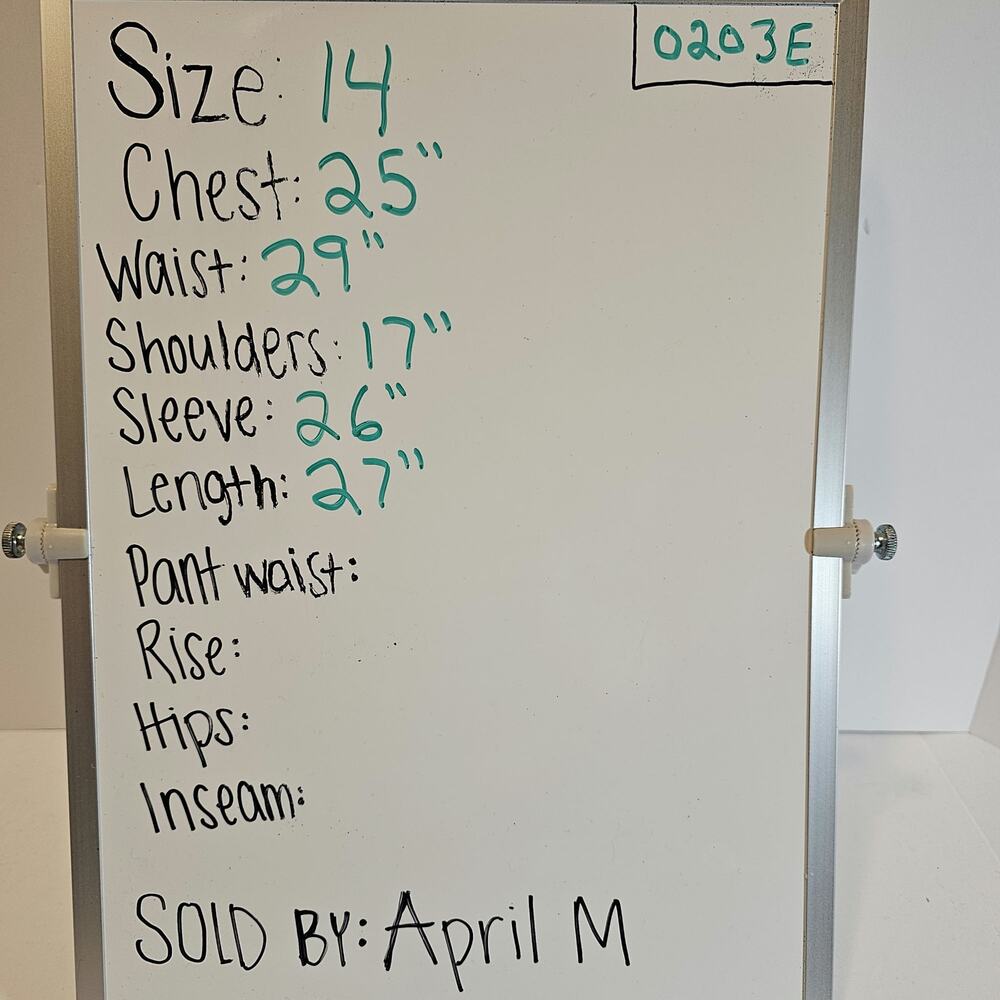 0203E
Size: 14
Chest: 25"
Waist: 29"
Shoulders: 17"
Sleeve: 26"
Length: 27"
Pant waist:
Rise:
Hips:
Inseam:
SOLD BY: April M